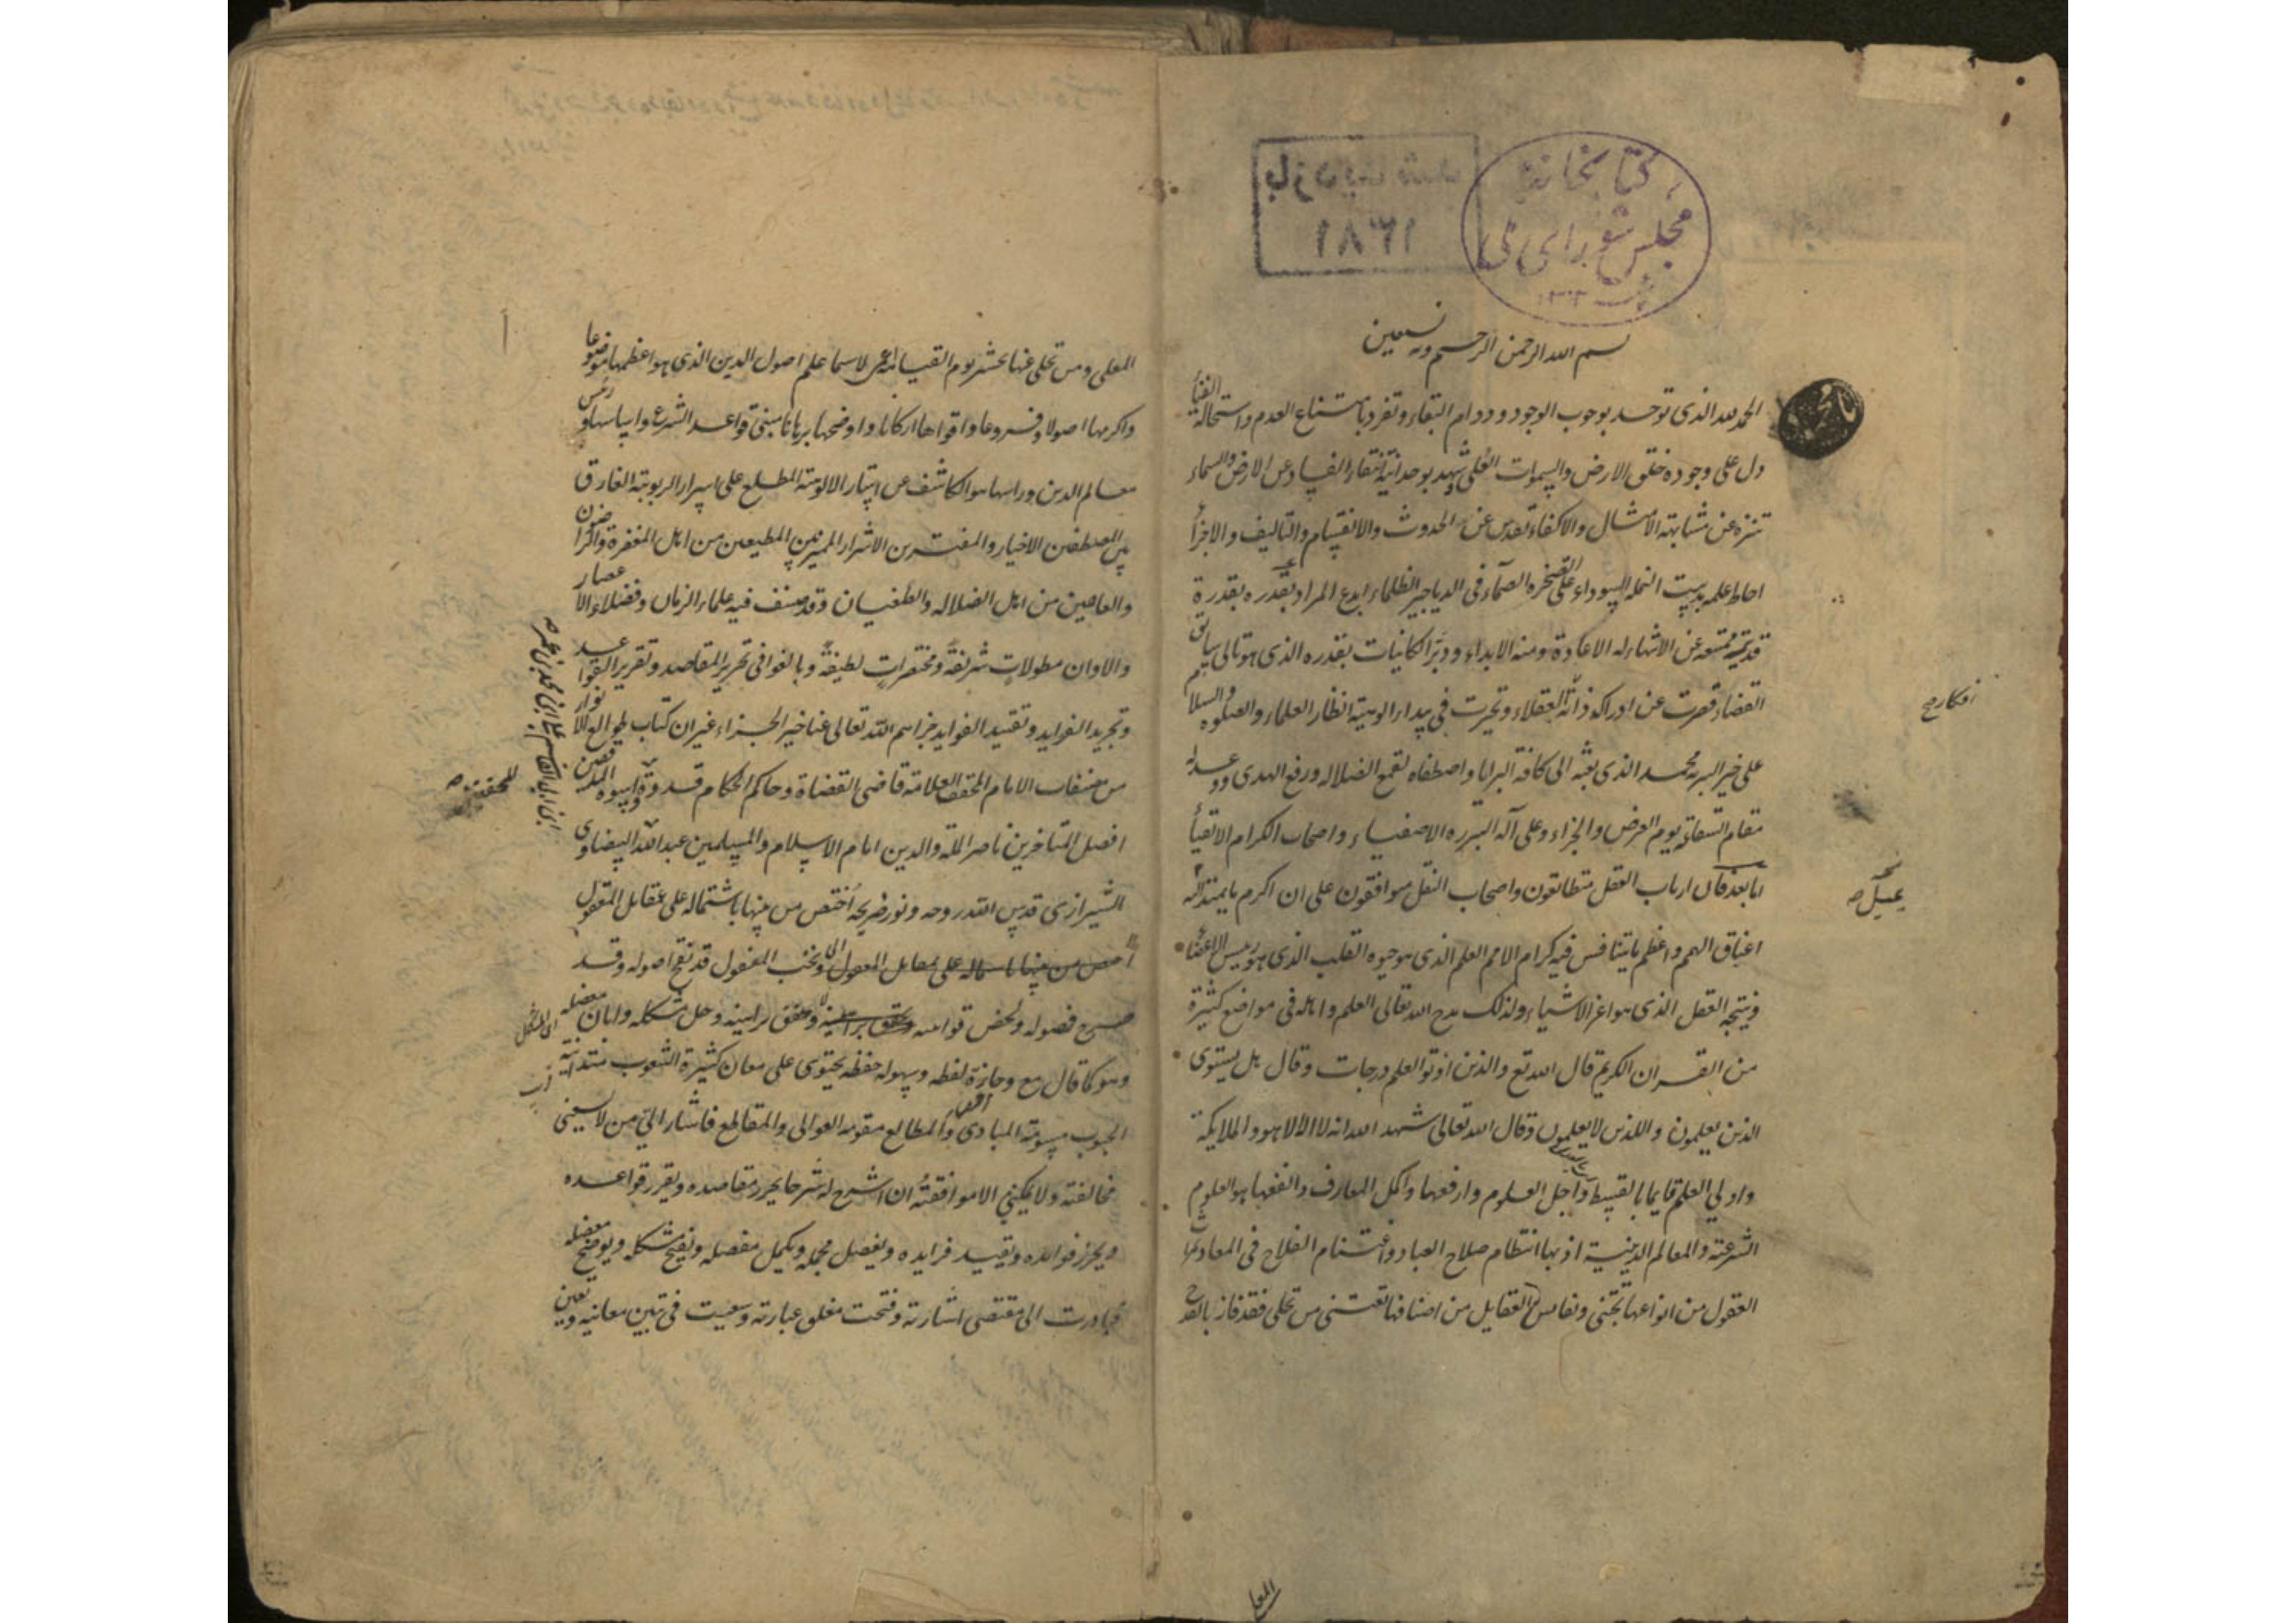 كتابخانهٔ
مجلس شورای ملی
بازدید شد
۱۳۸۱
بسم الله الرحمن الرحيم وبه نستعين
الحمد لله الذى توحد بوجوب الوجود ودوام البقاء وتفرد بامتناع العدم واستحالة الفنأ
دل على وجوده خلق الارض والسموات العلى وشهد بوحدانيته انتفاء الفساد عن الارض والسماء
تنزه عن مشابهة الامثال والاكفاء تقدس عن الحدوث والانقسام والتاليف والاجزأ
احاط علمه بدبيب النملة السوداء على الصخره الصمآء فى الدياجير الظلماء ابدع المراد بقدره بقدرة
قديمة ممتنعه عن الانتهاء له الاعادة ومنه الابداء ودبر الكائنات بقدره الذى هو تالى سابق
القضاء قصرت عن ادراك ذاته العقلاء وتحيرت فى بيداء الوهيته انظار العلماء والصلوه والسلام
افكار صح
على خير البريه محمد الذى بعثه الى كافة البرايا واصطفاه لقمع الضلاله ورفع الهدى ووعد له
مقام الشفاعة يوم العرض والجزاء وعلى آله البرره الاصفياء واصحاب الكرام الاتقيأ
اما بعد فان ارباب العقل متطابقون واصحاب النقل متوافقون على ان اكرم ما يمتد اليه
اعناق الهمم واعظم ما يتنافس فيه كرام الامم العلم الذى هو حيوه القلب الذى هو رييس الاعضأ
ونتيجه العقل الذى هو اعز الاشياء ولذلك مدح الله تعالى العلم واهله فى مواضع كثيرة
من القران الكريم قال الله تع والذين اوتوا العلم درجات وقال هل يستوى
الذين يعلمون والذين لا يعلمون وقال الله تعالى شهد الله انه لا اله الا هو والملايكة
واولي العلم قايما بالقسط وآجل العلوم وارفعها واكمل المعارف وانفعها هو العلوم
الشرعية والمعالم الدينية اذ بها انتظام صلاح العباد واغتنام الفلاح فى المعاد
العقول من انواعها تجتنى ونفايس العقايل من اصنافها تقتنى من تحلى فقد فاز بالقدح
المعلى
المعلى ومن تخلى عنها يحشر يوم القيامة اعمى لاسيما علم اصول الدين الذى هو اعظمها موضوعا
واكرمها اصولا وفروعا واقواها اركانا واوضحها برهانا مبنى قواعد الشرع واساسها ورئس
معالم الدين وراسها هو الكاشف عن استار الالوهية المطلع على اسرار الربوبية الفارق
بين المصطفين الاخيار والمفترين الاشرار المميز بين المطيعين من اهل المغفرة والرضون
والعاصين من اهل الضلاله والطغيان وقد صنف فيه علماء الزمان وفضلاء الاعصار
والاوان مطولات شريفة ومختصرات لطيفة وبالغوا فى تحرير المقاصد وتقرير القواعد
وتجريد الفرايد وتقييد الفوايد جزاهم الله تعالى عنا خير الجزاء غير ان كتاب طوالع الانوار
من مصنفات الامام المحقق العلامة قاضى القضاة وحاكم الحكام قدوة واسوه المدققين
للمحققين صح
افضل المتاخرين ناصر الملة والدين امام الاسلام والمسلمين عبد الله البيضاوى
الشيرازى قدس الله روحه ونور ضريحه اختص من بينها باشتماله على عقايل المعقول
ونخب المنقول قد نقح اصوله وقد
فصوله ولخص قوانينه وحقق براهينه وحل مشكله وابان معضله
وهو كما قال مع وجازة لفظه وسهوله حفظه يحتوى على معان كثيرة الشعوب متدانية
الجنوب مسومة المبادى والمطالع مقومه العوالى والمقاطع فاشار الي من لا يسعنى
مخالفته ولا يمكنني الا موافقته ان اشرح له شرحا يحرر مقاصده ويقرر قواعده
ويحرز فوايده ويقيد فرايده ويفصل مجمله ويكمل مفصله ويفتح مشكله ويوضح معضله
فبادرت الى مقتضى اشارته وفتحت مغلق عبارته وسعيت فى تبيين معانيه